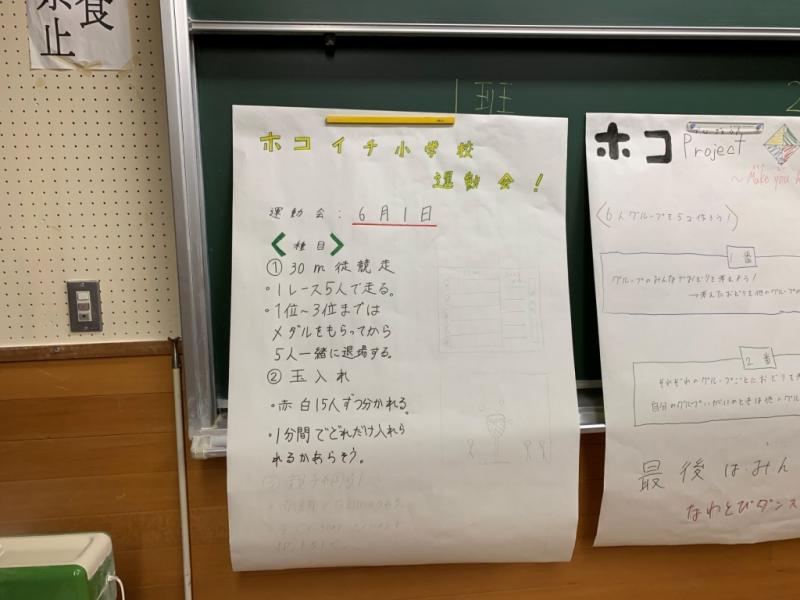 食
禁止
1班
2
ホコイチ小学校
運動会!
運動会: 6月1日
<種目>
① 30m 徒競走
・1レース5人で走る。
・1位~3位までは
メダルをもらってから
5人一緒に退場する。
② 玉入れ
・赤白15人ずつ分かれる。
・1分間でどれだけ入れら
れるかあらそう。
ホコ Project
~Make you
<6人グループを5コ作ろう!
1番
グループのみんなでおどりを考えよう!
→考えたおどりを他のグループの
2番
それぞれのグループごとにおどりを
自分のグループいがいのときは他のグル
最後はみん
なわとびダンス